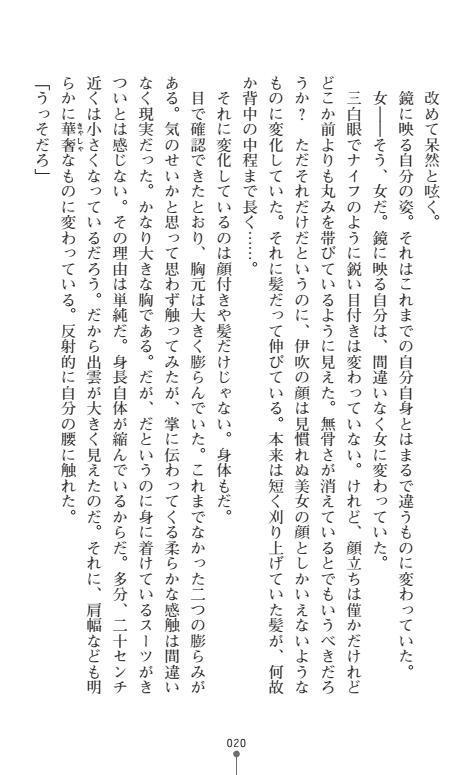 改めて呆然と呟く。
鏡に映る自分の姿。それはこれまでの自分自身とはまるで違うものに変わっていた。
女――そう、女だ。鏡に映る自分は、間違いなく女に変わっていた。
三白眼でナイフのように鋭い目付きは変わっていない。けれど、顔立ちは僅かだけれど
どこか前よりも丸みを帯びているように見えた。無骨さが消えているとでもいうべきだろ
うか？　ただそれだけだというのに、伊吹の顔は見慣れぬ美女の顔としかいえないような
ものに変化していた。それに髪だって伸びている。本来は短く刈り上げていた髪が、何故
か背中の中程まで長く……。
それに変化しているのは顔付きや髪だけじゃない。身体もだ。
目で確認できたとおり、胸元は大きく膨らんでいた。これまでなかった二つの膨らみが
ある。気のせいかと思って思わず触ってみたが、掌に伝わってくる柔らかな感触は間違い
なく現実だった。かなり大きな胸である。だが、だというのに身に着けているスーツがき
ついとは感じない。その理由は単純だ。身長自体が縮んでいるからだ。多分、二十センチ
近くは小さくなっているだろう。だから出雲が大きく見えたのだ。それに、肩幅なども明
らかに華奢なものに変わっている。反射的に自分の腰に触れた。
きゃしゃ
「うっそだろ」
020